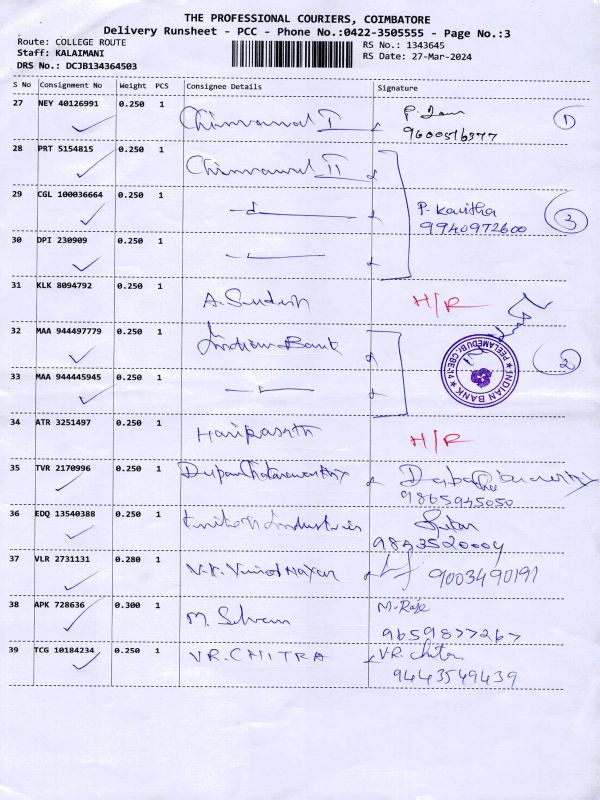 THE PROFESSIONAL COURIERS, COIMBATORE
Delivery Runsheet - PCC - Phone No.:0422-3505555 - Page No.:3
Route: COLLEGE ROUTE
RS No.: 1343645
Staff: KALAIMANI
RS Date: 27-Mar-2024
DRS No.: DCJB134364503
S No Consignment No Weight PCS Consignee Details Signature
27 NEY 40126991 0.250 1 I P. 9600516377 1
28 PRT 5154815 0.250 1 II
29 CGL 100036664 0.250 1 P. Kavitha 9940972600 3
30 DPI 230909 0.250 1
31 KLK 8094792 0.250 1 A. Sudesh H/R
32 MAA 944497779 0.250 1 Indian Bank 2
INDIAN BANK
PEELAMEDU Br. CBE-14
33 MAA 944445945 0.250 1
34 ATR 3251497 0.250 1 Hariprasath H/R
35 TVR 2170996 0.250 1 9865945050
36 EDQ 13540388 0.250 1 Industries 9843520004
37 VLR 2731131 0.280 1 9003490191
38 APK 728636 0.300 1 M. Selvam M. Raje 9659877267
39 TCG 10184234 0.250 1 V.R. CHITRA V.R. Chitra 9443549439